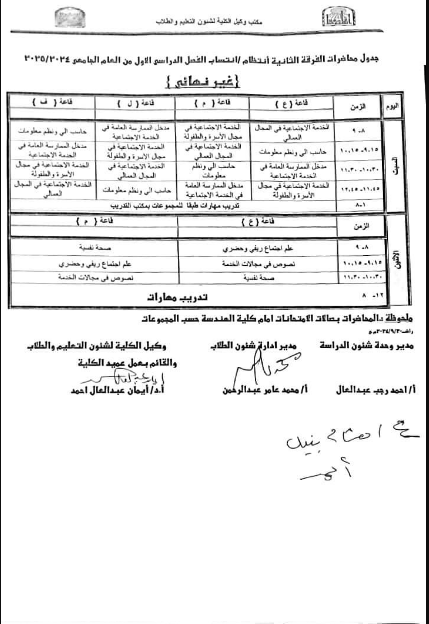 مكتب وكيل الكلية لشئون التعليم والطلاب
جدول محاضرات الفرقة الثانية أنتظام /انتساب الفصل الدراسي الاول من العام الجامعي ٢٠٢٥/٢٠٢٤
{غير نهائي}
اليوم الزمن قاعة ( ع ) قاعة ( م ) قاعة ( ل ) قاعة ( ف )
السبت
٨-٩ الخدمة الاجتماعية في المجال العمالي الخدمة الاجتماعية في مجال الأسرة والطفولة مدخل الممارسة العامة في الخدمة الاجتماعية حاسب الي ونظم معلومات
٩,١٥-١٠,١٥ حاسب الي ونظم معلومات الخدمة الاجتماعية في المجال العمالي الخدمة الاجتماعية في مجال الأسرة والطفولة مدخل الممارسة العامة في الخدمة الاجتماعية
١٠,٣٠-١١,٣٠ مدخل الممارسة العامة في الخدمة الاجتماعية حاسب الي ونظم معلومات الخدمة الاجتماعية في المجال العمالي الخدمة الاجتماعية في مجال الأسرة والطفولة
١١,٤٥-١٢,٤٥ الخدمة الاجتماعية في مجال الأسرة والطفولة مدخل الممارسة العامة في الخدمة الاجتماعية حاسب الي ونظم معلومات الخدمة الاجتماعية في المجال العمالي
١-٨ تدريب مهارات طبقا للمجموعات بمكتب التدريب
الاثنين
الزمن قاعة ( ع ) قاعة ( م )
٨-٩ علم اجتماع ريفي وحضري صحة نفسية
٩,١٥-١٠,١٥ نصوص في مجالات الخدمة علم اجتماع ريفي وحضري
١٠,٣٠-١١,٣٠ صحة نفسية نصوص في مجالات الخدمة
١٢-٨ تدريب مهارات
ملحوظة :المحاضرات بصالات الامتحانات امام كلية الهندسة حسب المجموعات
مدير وحدة شئون الدراسة مدير ادارة شئون الطلاب وكيل الكلية لشئون التعليم والطلاب
والقائم بعمل عميد الكلية
أ/ احمد رجب عبدالعال أ/ محمد عامر عبدالرحمن أ.د/ أيمان عبدالعال احمد